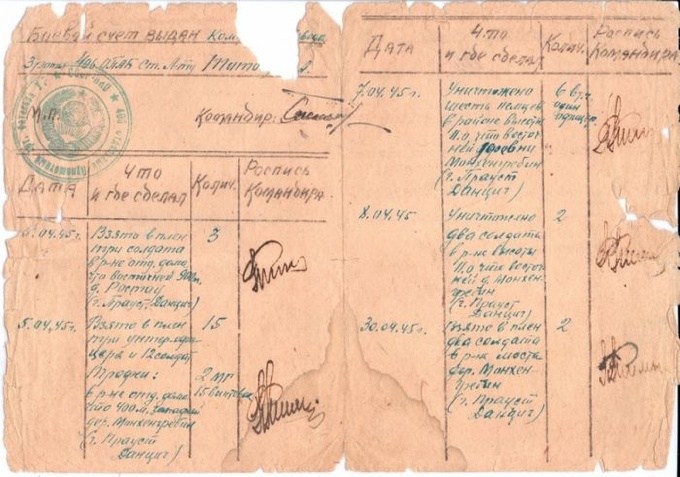 Боевой счет выдан Ком
3 роты 496 Ст. л-ту Тито
М.П.
Командир:
Дата
Что
и где сделал
Колич.
Роспись
Командира
.04.45г.
Взято в плен
три солдата
в р-не отд. дома
восточней 900м.
д. Ростау
(г. Прауст
Данциг)
3
5.04.45г.
Взято в плен
три унтерофи-
цера и 12 солдат
Трофеи:
в р-не отд. дома
что 400м. Западней
дер. Монхенгребин
(г. Прауст
Данциг)
15
2 МГ
15 винтовок
Дата
Что
и где сделал
Колич.
Роспись
Командира
7.04.45г.
Уничтожено
шесть немцев
в районе высоты
11.0, что восточ-
ней деревни
Монхенгребин
(г. Прауст
Данциг)
6 в т.ч.
один
офицер
8.04.45
Уничтожено
два солдата
в р-не высоты
11.0 что восто-
чней д. Монхен-
гребин
(г. Прауст
Данциг)
2
30.04.45г.
Взято в плен
два солдата
в р-не моста
дер. Монхен-
гребин
(г. Прауст
Данциг)
2